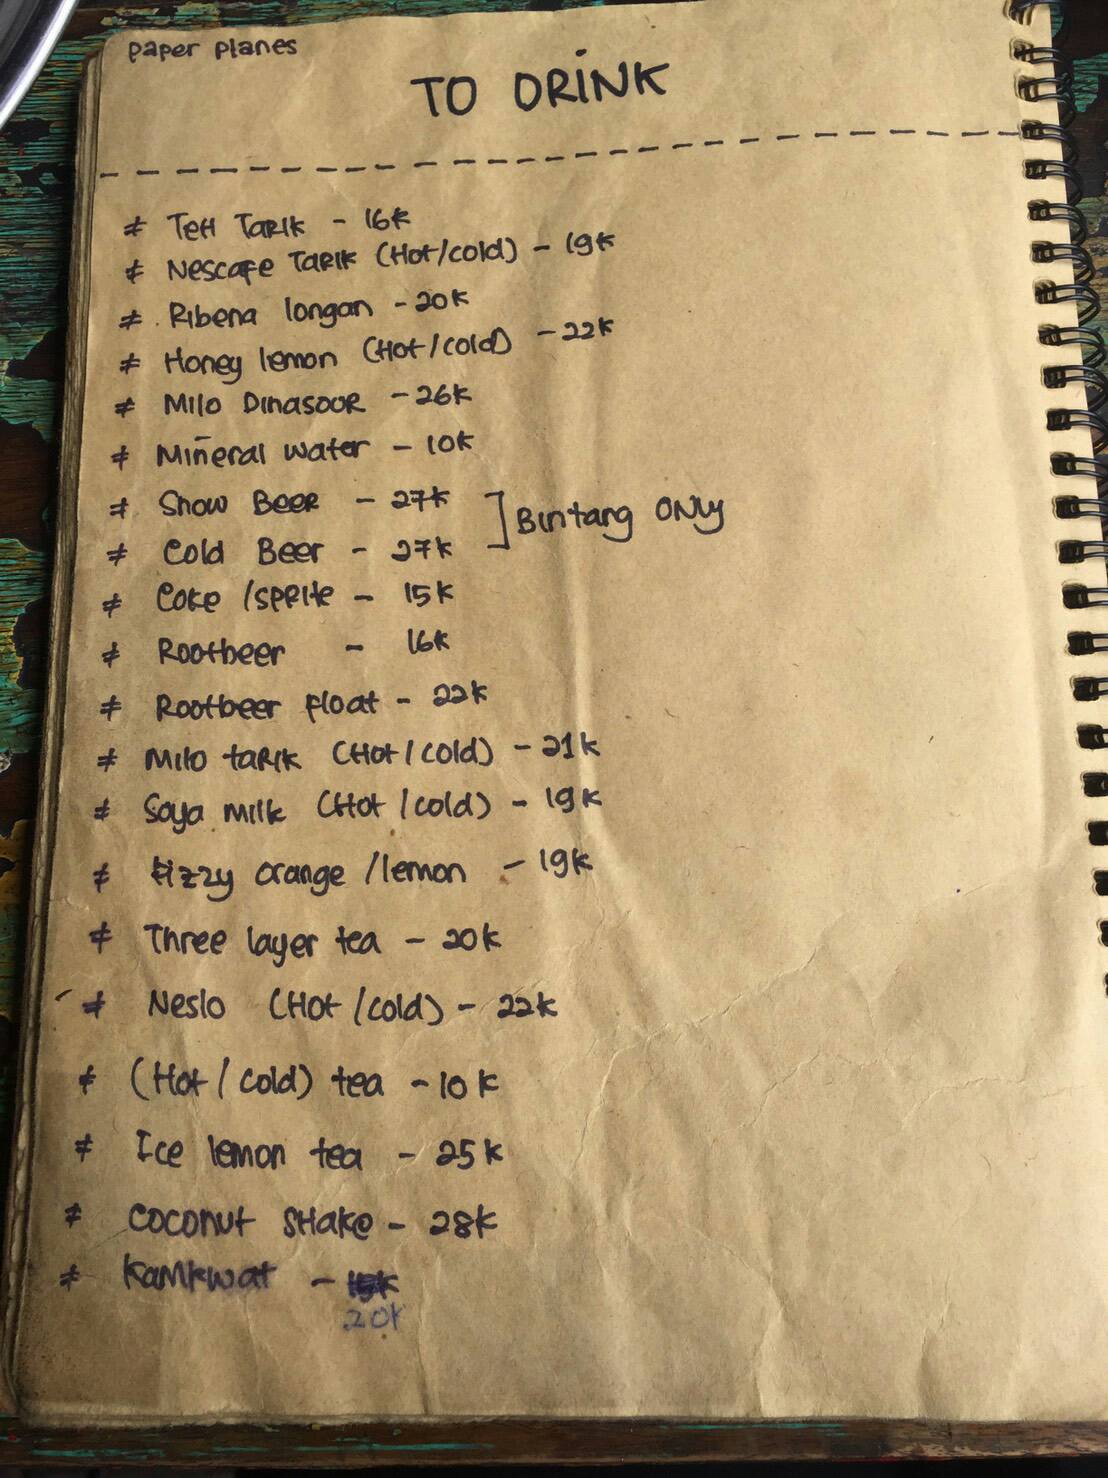 paper planes
TO DRINK
≠ Teh Tarik - 16k
≠ Nescafe Tarik (Hot/cold) - 19k
≠ Ribena longan - 20k
≠ Honey lemon (Hot/cold) - 22k
≠ Milo Dinasoor - 26k
≠ Mineral water - 10k
≠ Snow Beer - 27k
] Bintang ONly
≠ Cold Beer - 27k
≠ Coke /sprite - 15k
≠ Rootbeer - 16k
≠ Rootbeer float - 22k
≠ Milo tarik (Hot/cold) - 21k
≠ Soya milk (Hot/cold) - 19k
≠ fizzy orange /lemon - 19k
≠ Three layer tea - 20k
≠ Neslo (Hot/cold) - 22k
≠ (Hot/cold) tea - 10k
≠ Ice lemon tea - 25k
≠ coconut shake - 28k
≠ kamkwat -
20k